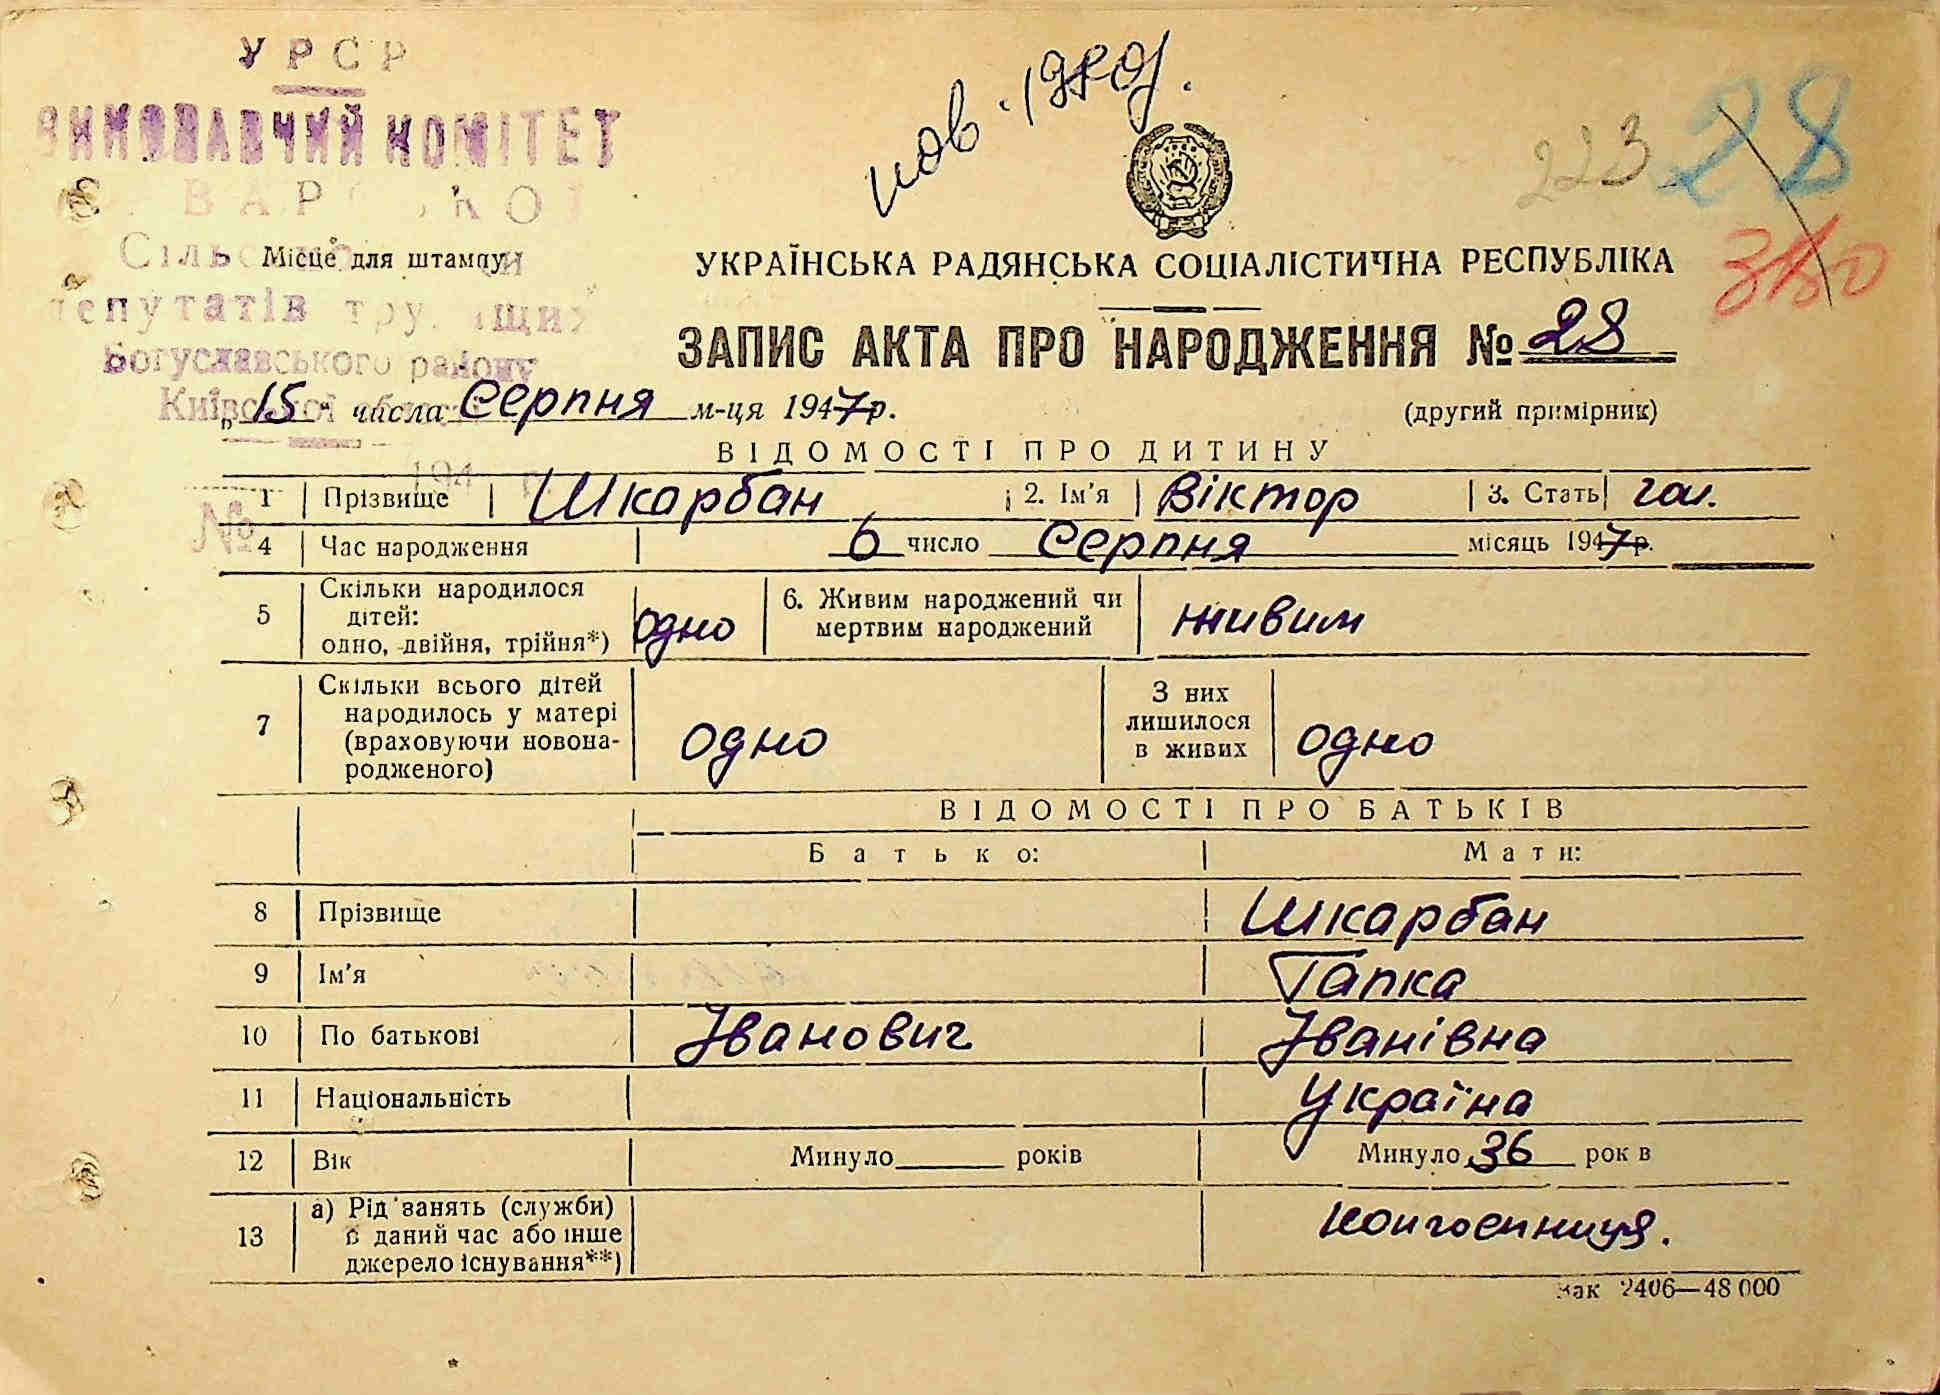 УРСР
ВИКОНАВЧИЙ КОМІТЕТ
Місце для штампу
депутатів трудящих
Богуславського району
Київської
№
пов. 1980р.
223 28
380
УКРАЇНСЬКА РАДЯНСЬКА СОЦІАЛІСТИЧНА РЕСПУБЛІКА
ЗАПИС АКТА ПРО НАРОДЖЕННЯ № 28
„15" числа Серпня м-ця 1947 р.
(другий примірник)
ВІДОМОСТІ ПРО ДИТИНУ
1 Прізвище Шкарбан 2. Ім'я Віктор 3. Стать чол.
4 Час народження 6 число Серпня місяць 1947 р.
5 Скільки народилося дітей: одно, двійня, трійня*) одно 6. Живим народжений чи мертвим народжений живим
7 Скільки всього дітей народилось у матері (враховуючи новонародженого) одно З них лишилося в живих одно
ВІДОМОСТІ ПРО БАТЬКІВ
Батько: Мати:
8 Прізвище Шкарбан
9 Ім'я Гапка
10 По батькові Іванович Іванівна
11 Національність Україна
12 Вік Минуло років Минуло 36 років
13 а) Рід занять (служби) в даний час або інше джерело існування**) колгоспниця.
Зак 2406—48 000